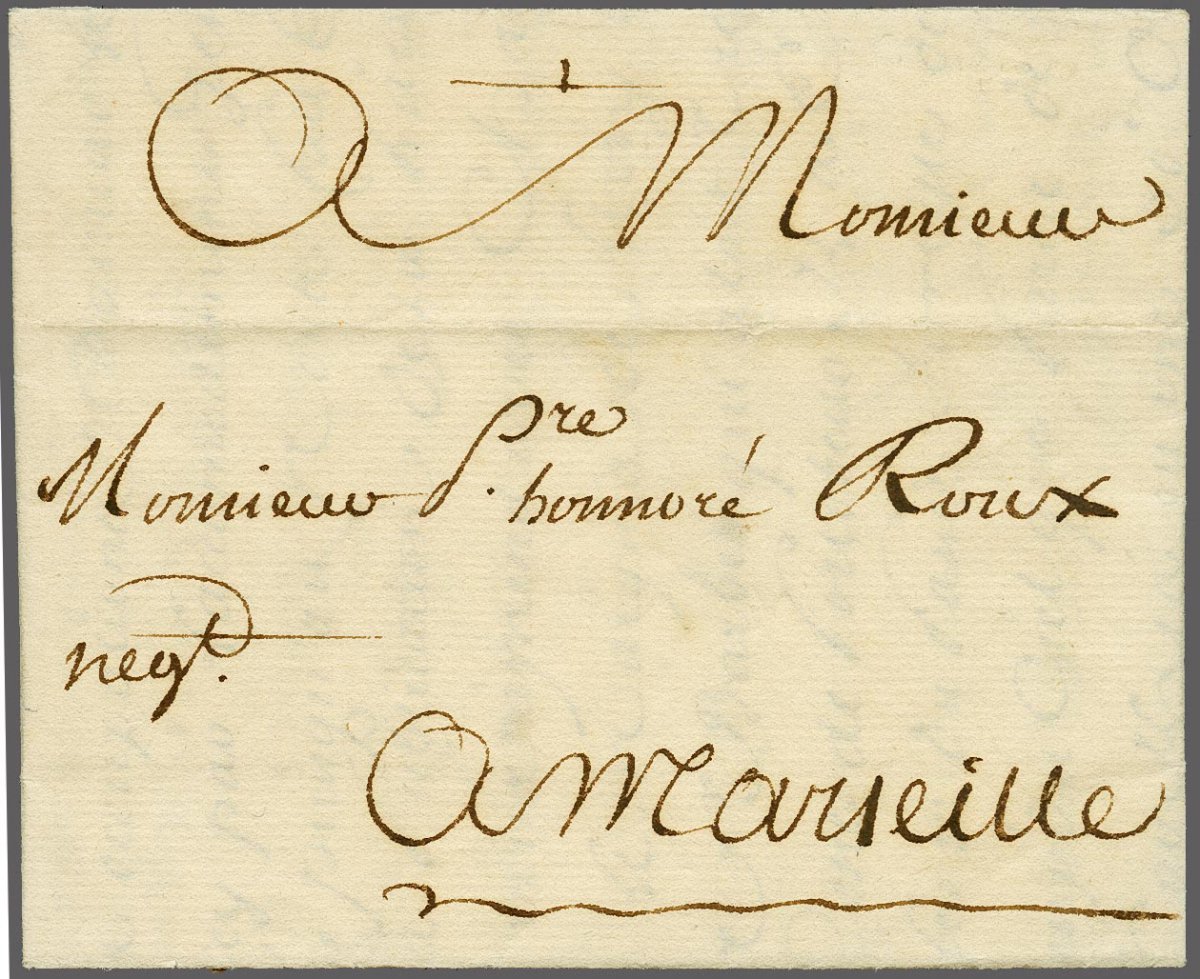 A Monsieur
Monsieur Pre. honnoré Roux
negt.
A Marseille